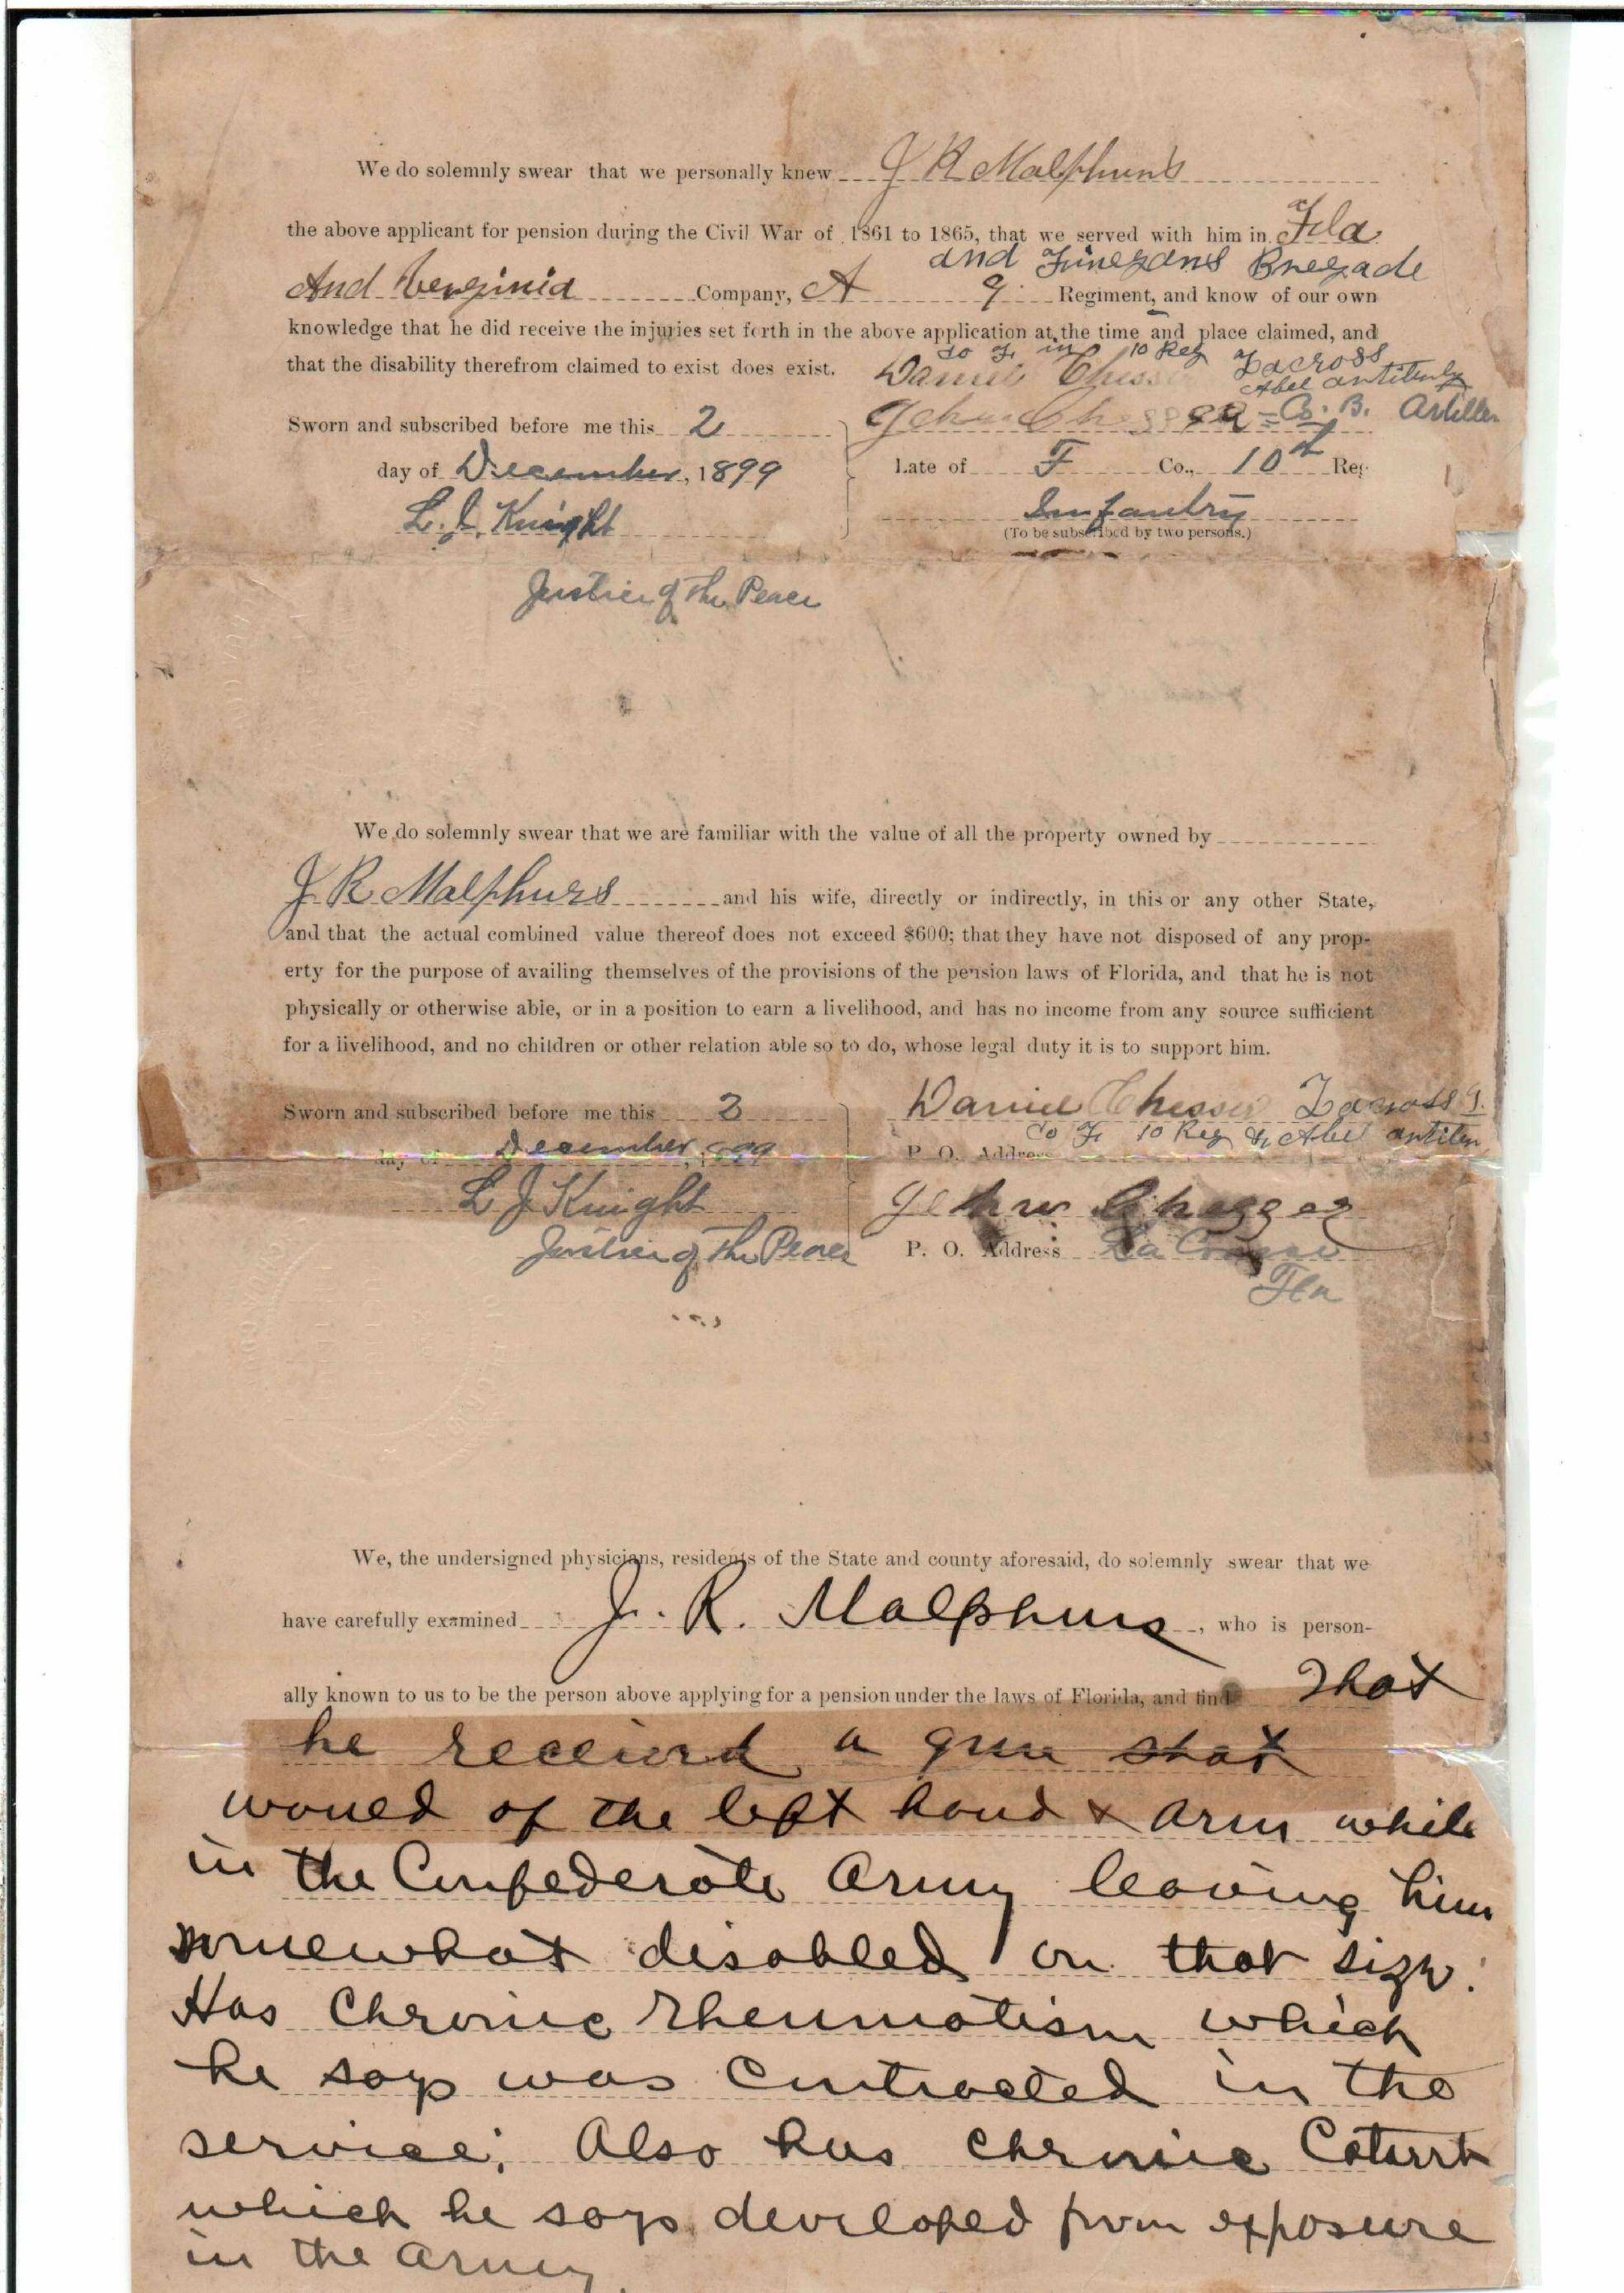 We do solemnly swear that we personally knew J R Malphurs
the above applicant for pension during the Civil War of 1861 to 1865, that we served with him in Fla
and Finegans Bregade
And Verginia Company, A 9 Regiment, and know of our own
knowledge that he did receive the injuries set forth in the above application at the time and place claimed, and
Co F in 10 Reg Lacross
that the disability therefrom claimed to exist does exist. Daniel Chesser
Abel
Sworn and subscribed before me this 2 Co. B. Artiller
day of December, 1899 Late of F Co., 10th Reg
L. J. Knight Infantry
(To be subscribed by two persons.)
Justice of The Peace
We do solemnly swear that we are familiar with the value of all the property owned by
J R Malphurs and his wife, directly or indirectly, in this or any other State,
and that the actual combined value thereof does not exceed $600; that they have not disposed of any prop-
erty for the purpose of availing themselves of the provisions of the pension laws of Florida, and that he is not
physically or otherwise able, or in a position to earn a livelihood, and has no income from any source sufficient
for a livelihood, and no children or other relation able so to do, whose legal duty it is to support him.
Sworn and subscribed before me this 2 Daniel Chesser Lacross
Co F 10 Reg Abel
day of December, 1899 P. O. Address
L J Knight
Justice of The Peace P. O. Address La Crosse
Fla
We, the undersigned physicians, residents of the State and county aforesaid, do solemnly swear that we
have carefully examined J. R. Malphurs, who is person-
ally known to us to be the person above applying for a pension under the laws of Florida, and find That
he received a gun shot
wound of the left hand & arm while
in the Confederate Army leaving him
somewhat disabled on that side.
Has Chronic Rheumatism which
he says was contracted in the
service; Also has chronic Catarrh
which he says developed from exposure
in the army.